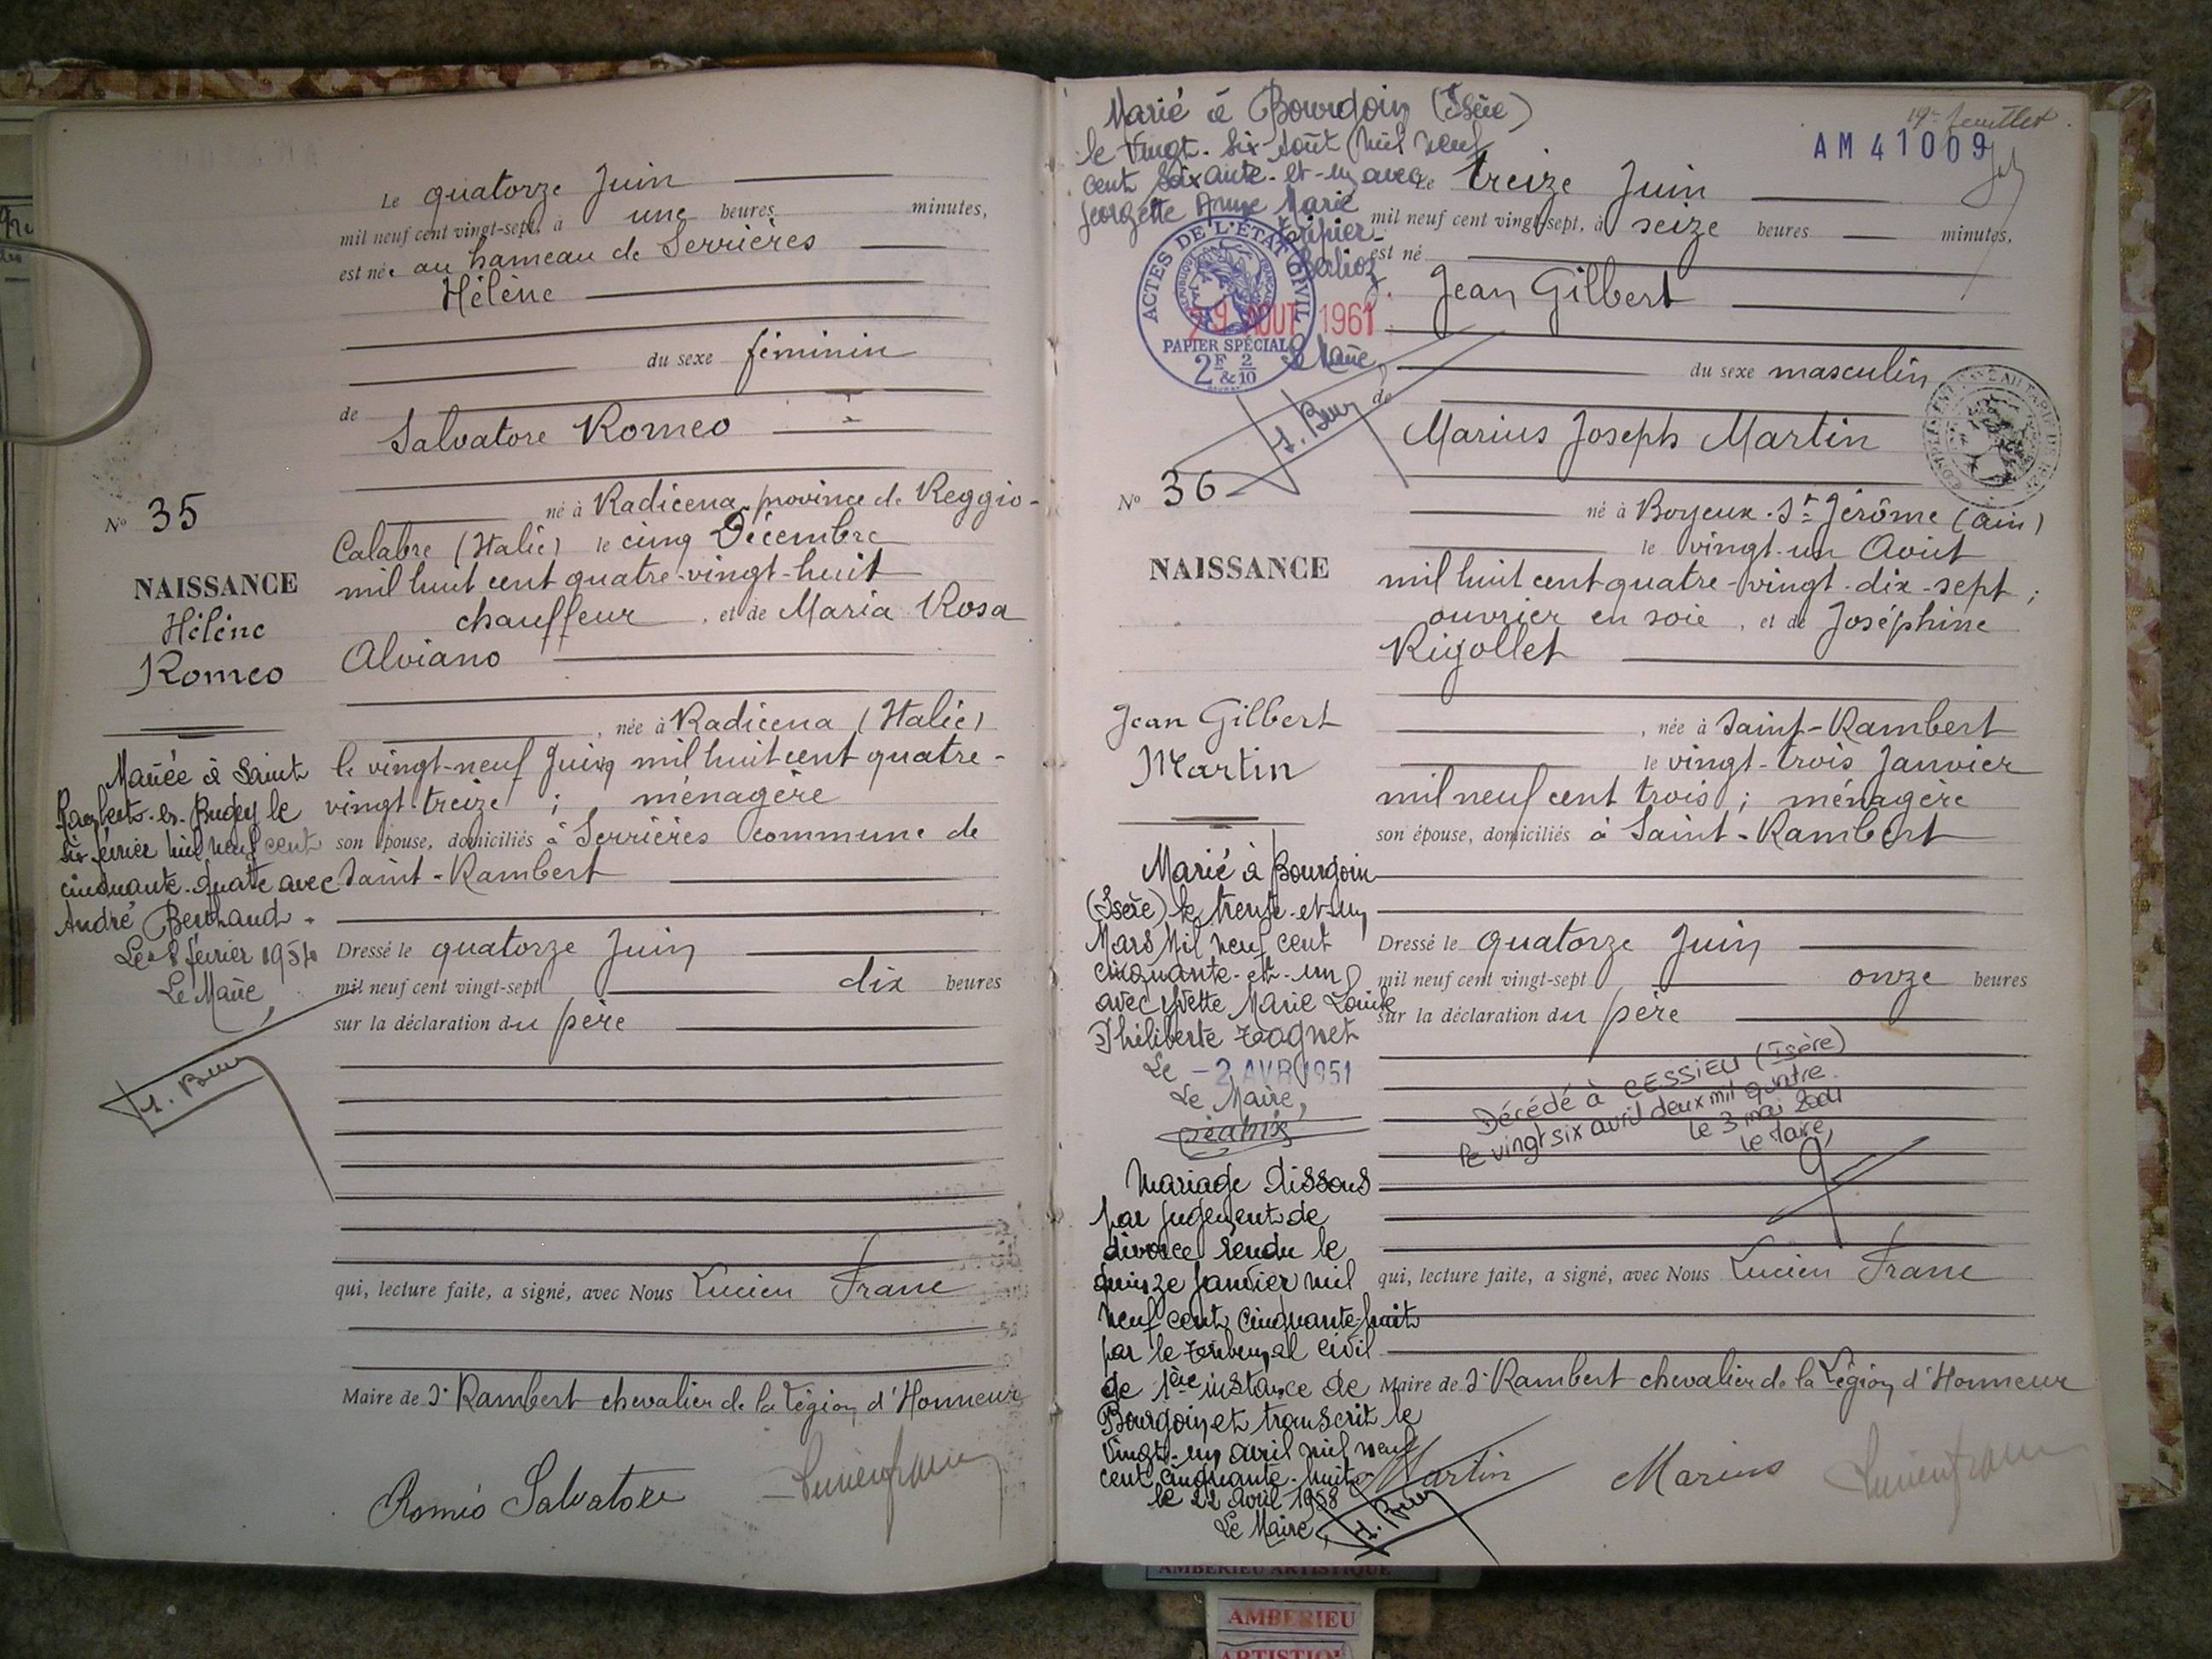 Le quatorze Juin
mil neuf cent vingt-sept, à une heures minutes,
est née au hameau de Serrières
Hélène
du sexe féminin
de
Salvatore Romeo
né à Radicena, province de Reggio-
Calabre (Italie) le cinq Décembre
mil huit cent quatre-vingt-huit
chauffeur, et de Maria Rosa
Alviano
, née à Radicena (Italie)
le vingt-neuf Juin mil huit cent quatre-
vingt-treize ; ménagère
son épouse, domiciliés à Serrières commune de
Saint-Rambert
Dressé le quatorze Juin
mil neuf cent vingt-sept dix heures
sur la déclaration du père
qui, lecture faite, a signé, avec Nous Lucien Franc
Maire de St Rambert chevalier de la Légion d'Honneur
Romeo Salvatore
N° 35
NAISSANCE
Hélène
Romeo
Mariée à Saint
Rambert-en-Bugey le
six février mil neuf cent
cinquante-quatre avec
André Berthaud.
Le 8 février 1954
Le Maire,
19e feuillet
AM 41009
Marié à Bourgoin (Isère)
le vingt-six Août mil neuf
cent soixante-et-un avec
Georgette Anne Marie
Berlioz
ACTES DE L'ÉTAT CIVIL
RÉPUBLIQUE FRANÇAISE
PAPIER SPÉCIAL
2F 2
& 10
29 AOUT 1961
Le Maire,
Le treize Juin
mil neuf cent vingt-sept, à seize heures minutes,
est né
Jean Gilbert
du sexe masculin
de
Marius Joseph Martin
né à Boyeux-St Jérôme (Ain)
le vingt-un Août
mil huit cent quatre-vingt-dix-sept ;
ouvrier en soie, et de Joséphine
Rigollet
, née à Saint-Rambert
le vingt-trois Janvier
mil neuf cent trois ; ménagère
son épouse, domiciliés à Saint-Rambert
Dressé le quatorze Juin
mil neuf cent vingt-sept onze heures
sur la déclaration du père
Décédé à CESSIEU (Isère)
le vingt six avril deux mil quatre
le 3 mai 2004
le Maire,
qui, lecture faite, a signé, avec Nous Lucien Franc
Maire de St Rambert chevalier de la Légion d'Honneur
Martin Marius
N° 36
NAISSANCE
Jean Gilbert
Martin
Marié à Bourgoin
(Isère) le trente-et-un
Mars Mil neuf cent
cinquante-et-un
avec Yvette Marie Louise
Philiberte
Le -2 AVR 1951
Le Maire,
Mariage dissous
par jugement de
divorce rendu le
quinze janvier mil
neuf cent cinquante-huit
par le tribunal civil
de 1ère instance de
Bourgoin et transcrit le
vingt-un avril mil neuf
cent cinquante-huit
le 22 avril 1958
Le Maire,
AMBERIEU ARTISTIQUE
AMBERIEU
ARTISTIQUE